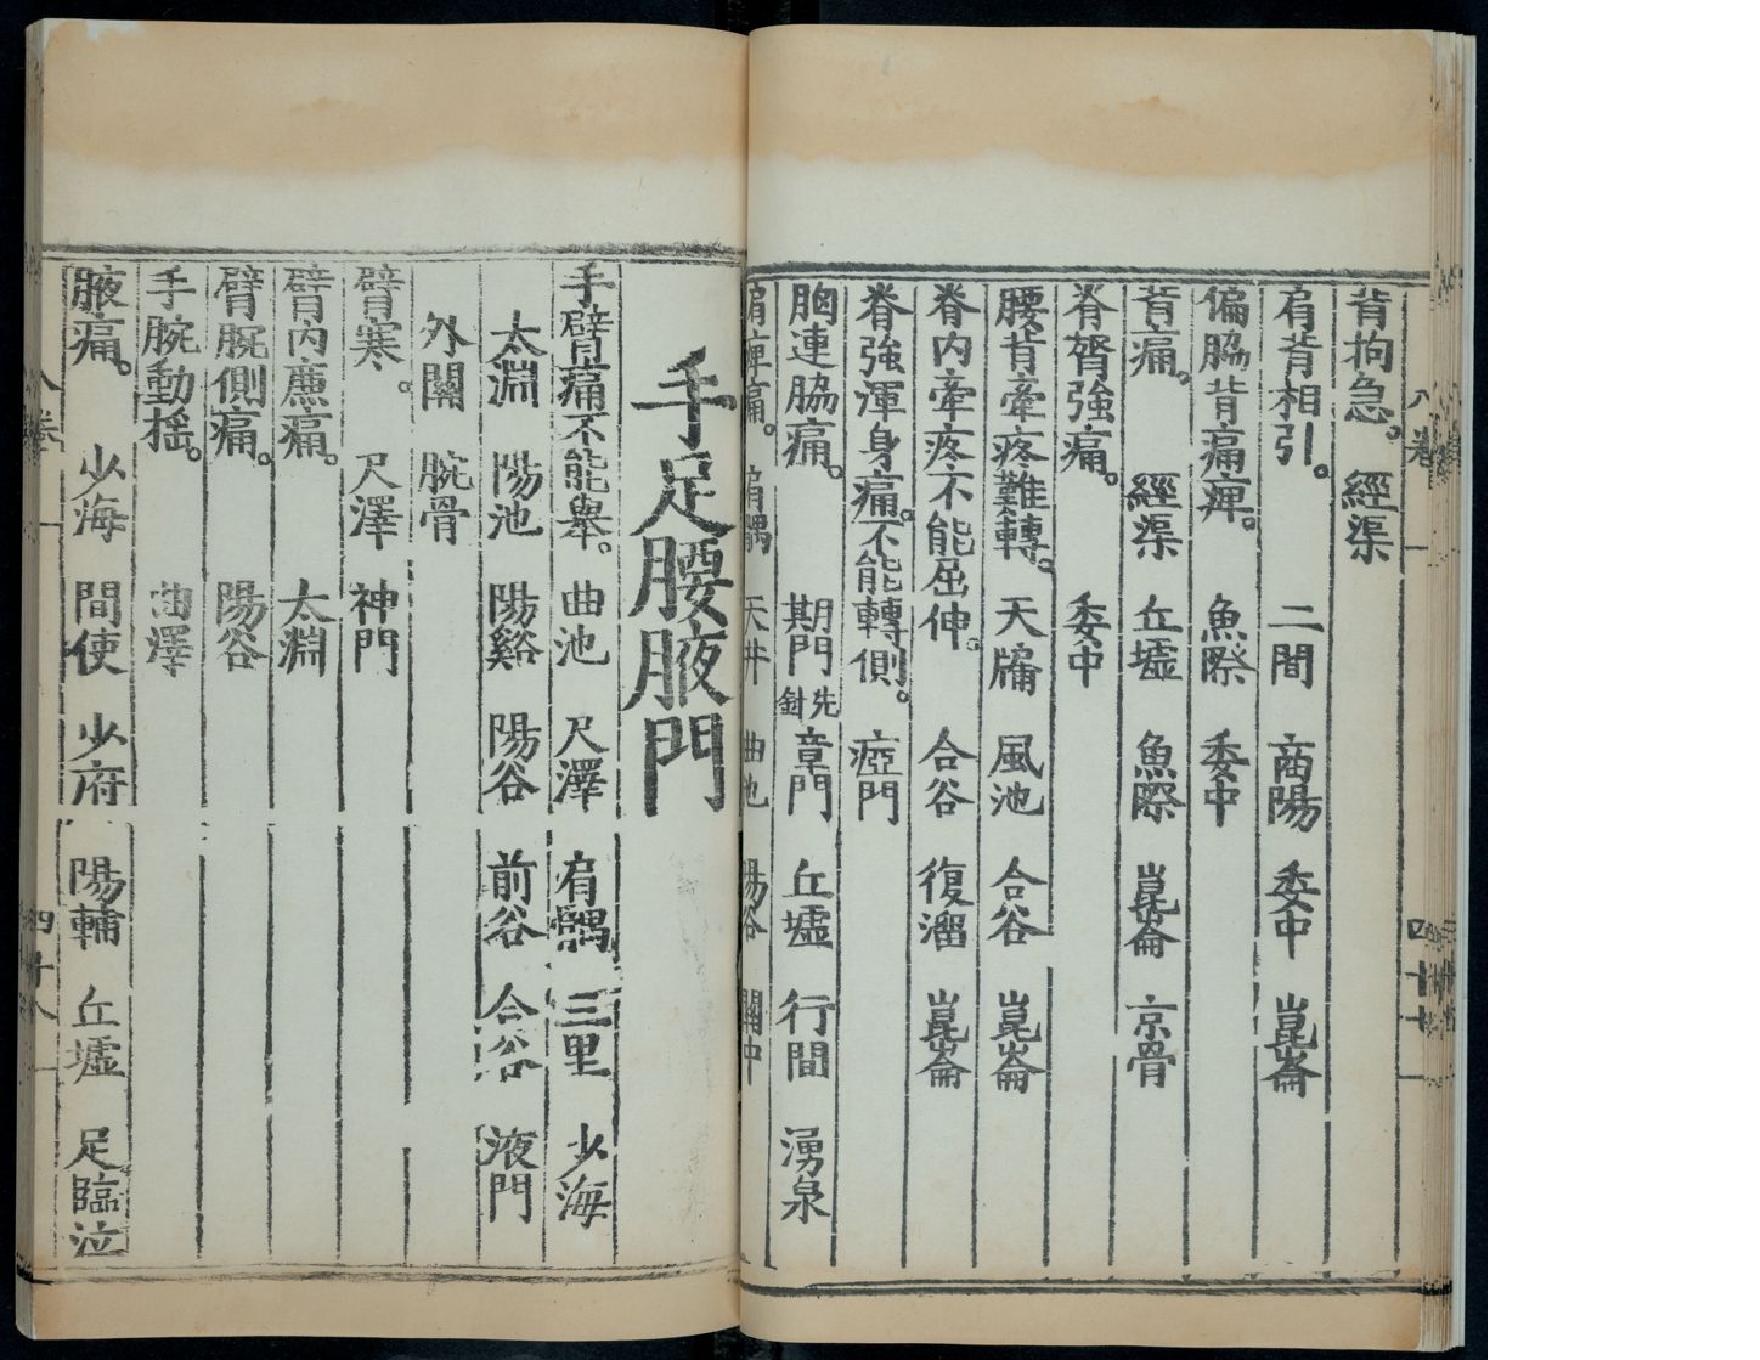 背拘急。 經渠
肩背相引。 二間 商陽 委中 崑崙
偏脇背痛痺。 魚際 委中
背痛。 經渠 丘墟 魚際 崑崙 京骨
脊膂強痛。 委中
腰背牽疼難轉。 天牖 風池 合谷 崑崙
脊內牽疼不能屈伸。 合谷 復溜 崑崙
脊強渾身痛。不能轉側。 瘂門
胸連脇痛。 期門先針 章門 丘墟 行間 湧泉
肩痺痛。 肩髃 天井 曲池 陽谷 關中
手足腰腋門
手臂痛不能舉。 曲池 尺澤 肩髃 三里 少海
太淵 陽池 陽谿 陽谷 前谷 合谷 液門
外關 腕骨
臂寒。 尺澤 神門
臂內廉痛。 太淵
臂腕側痛。 陽谷
手腕動搖。 曲澤
腋痛。 少海 間使 少府 陽輔 丘墟 足臨泣
八卷 四十八